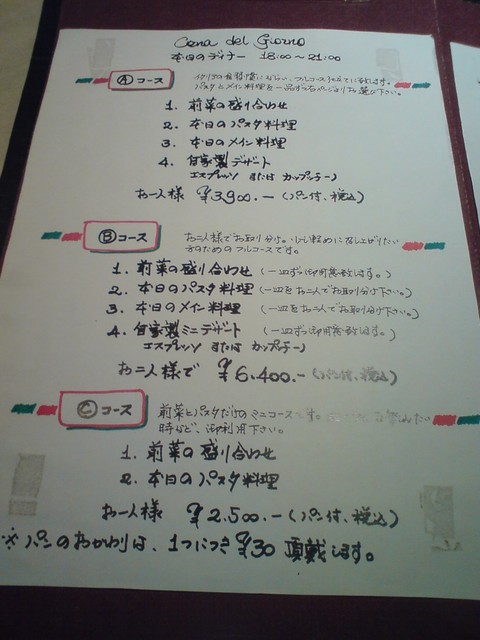 Cena del Giorno
本日のディナー 18:00〜21:00
Ⓐコース
イタリアの食習慣にならい、フルコース仕立てに致します。
パスタとメイン料理を一品ずつ右ページよりお選び下さい。
1. 前菜の盛り合わせ
2. 本日のパスタ料理
3. 本日のメイン料理
4. 自家製デザート
エスプレッソ または カップチーノ
お一人様 ¥3,900.-(パン付、税込)
Ⓑコース
お二人様でお取り分け。少し軽めに召し上げりたい
方のためのフルコースです。
1. 前菜の盛り合わせ (一皿ずつ御用意致します。)
2. 本日のパスタ料理 (一皿をお二人でお取り分け下さい。)
3. 本日のメイン料理 (一皿をお二人でお取り分け下さい。)
4. 自家製ミニデザート (一皿ずつ御用意致します。)
エスプレッソ または カップチーノ
お二人様で ¥6,400.-(パン付、税込)
Ⓒコース
前菜とパスタだけのミニコースです。
時など、御利用下さい。
1. 前菜の盛り合わせ
2. 本日のパスタ料理
お一人様 ¥2,500.-(パン付、税込)
※パンのおかわりは、1つにつき¥30 頂戴します。